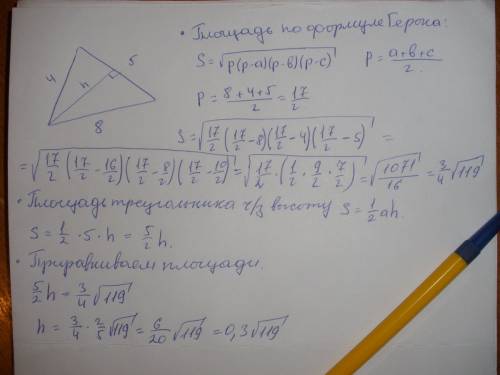 • Площадь по формуле Герона:
4 h 5
8
S = √(p(p-a)(p-в)(p-c)) p = (a+в+c)/2.
p = (8+4+5)/2 = 17/2
S = √(17/2 (17/2 - 8)(17/2 - 4)(17/2 - 5)) =
= √(17/2 (17/2 - 16/2)(17/2 - 8/2)(17/2 - 10/2)) = √(17/2 · (1/2 · 9/2 · 7/2)) = √(1071/16) = 3/4 √119
• Площадь треугольника ч/з высоту S = 1/2 ah.
S = 1/2 · 5 · h = 5/2 h.
• Приравниваем площади.
5/2 h = 3/4 √119
h = 3/4 · 2/5 √119 = 6/20 √119 = 0,3 √119